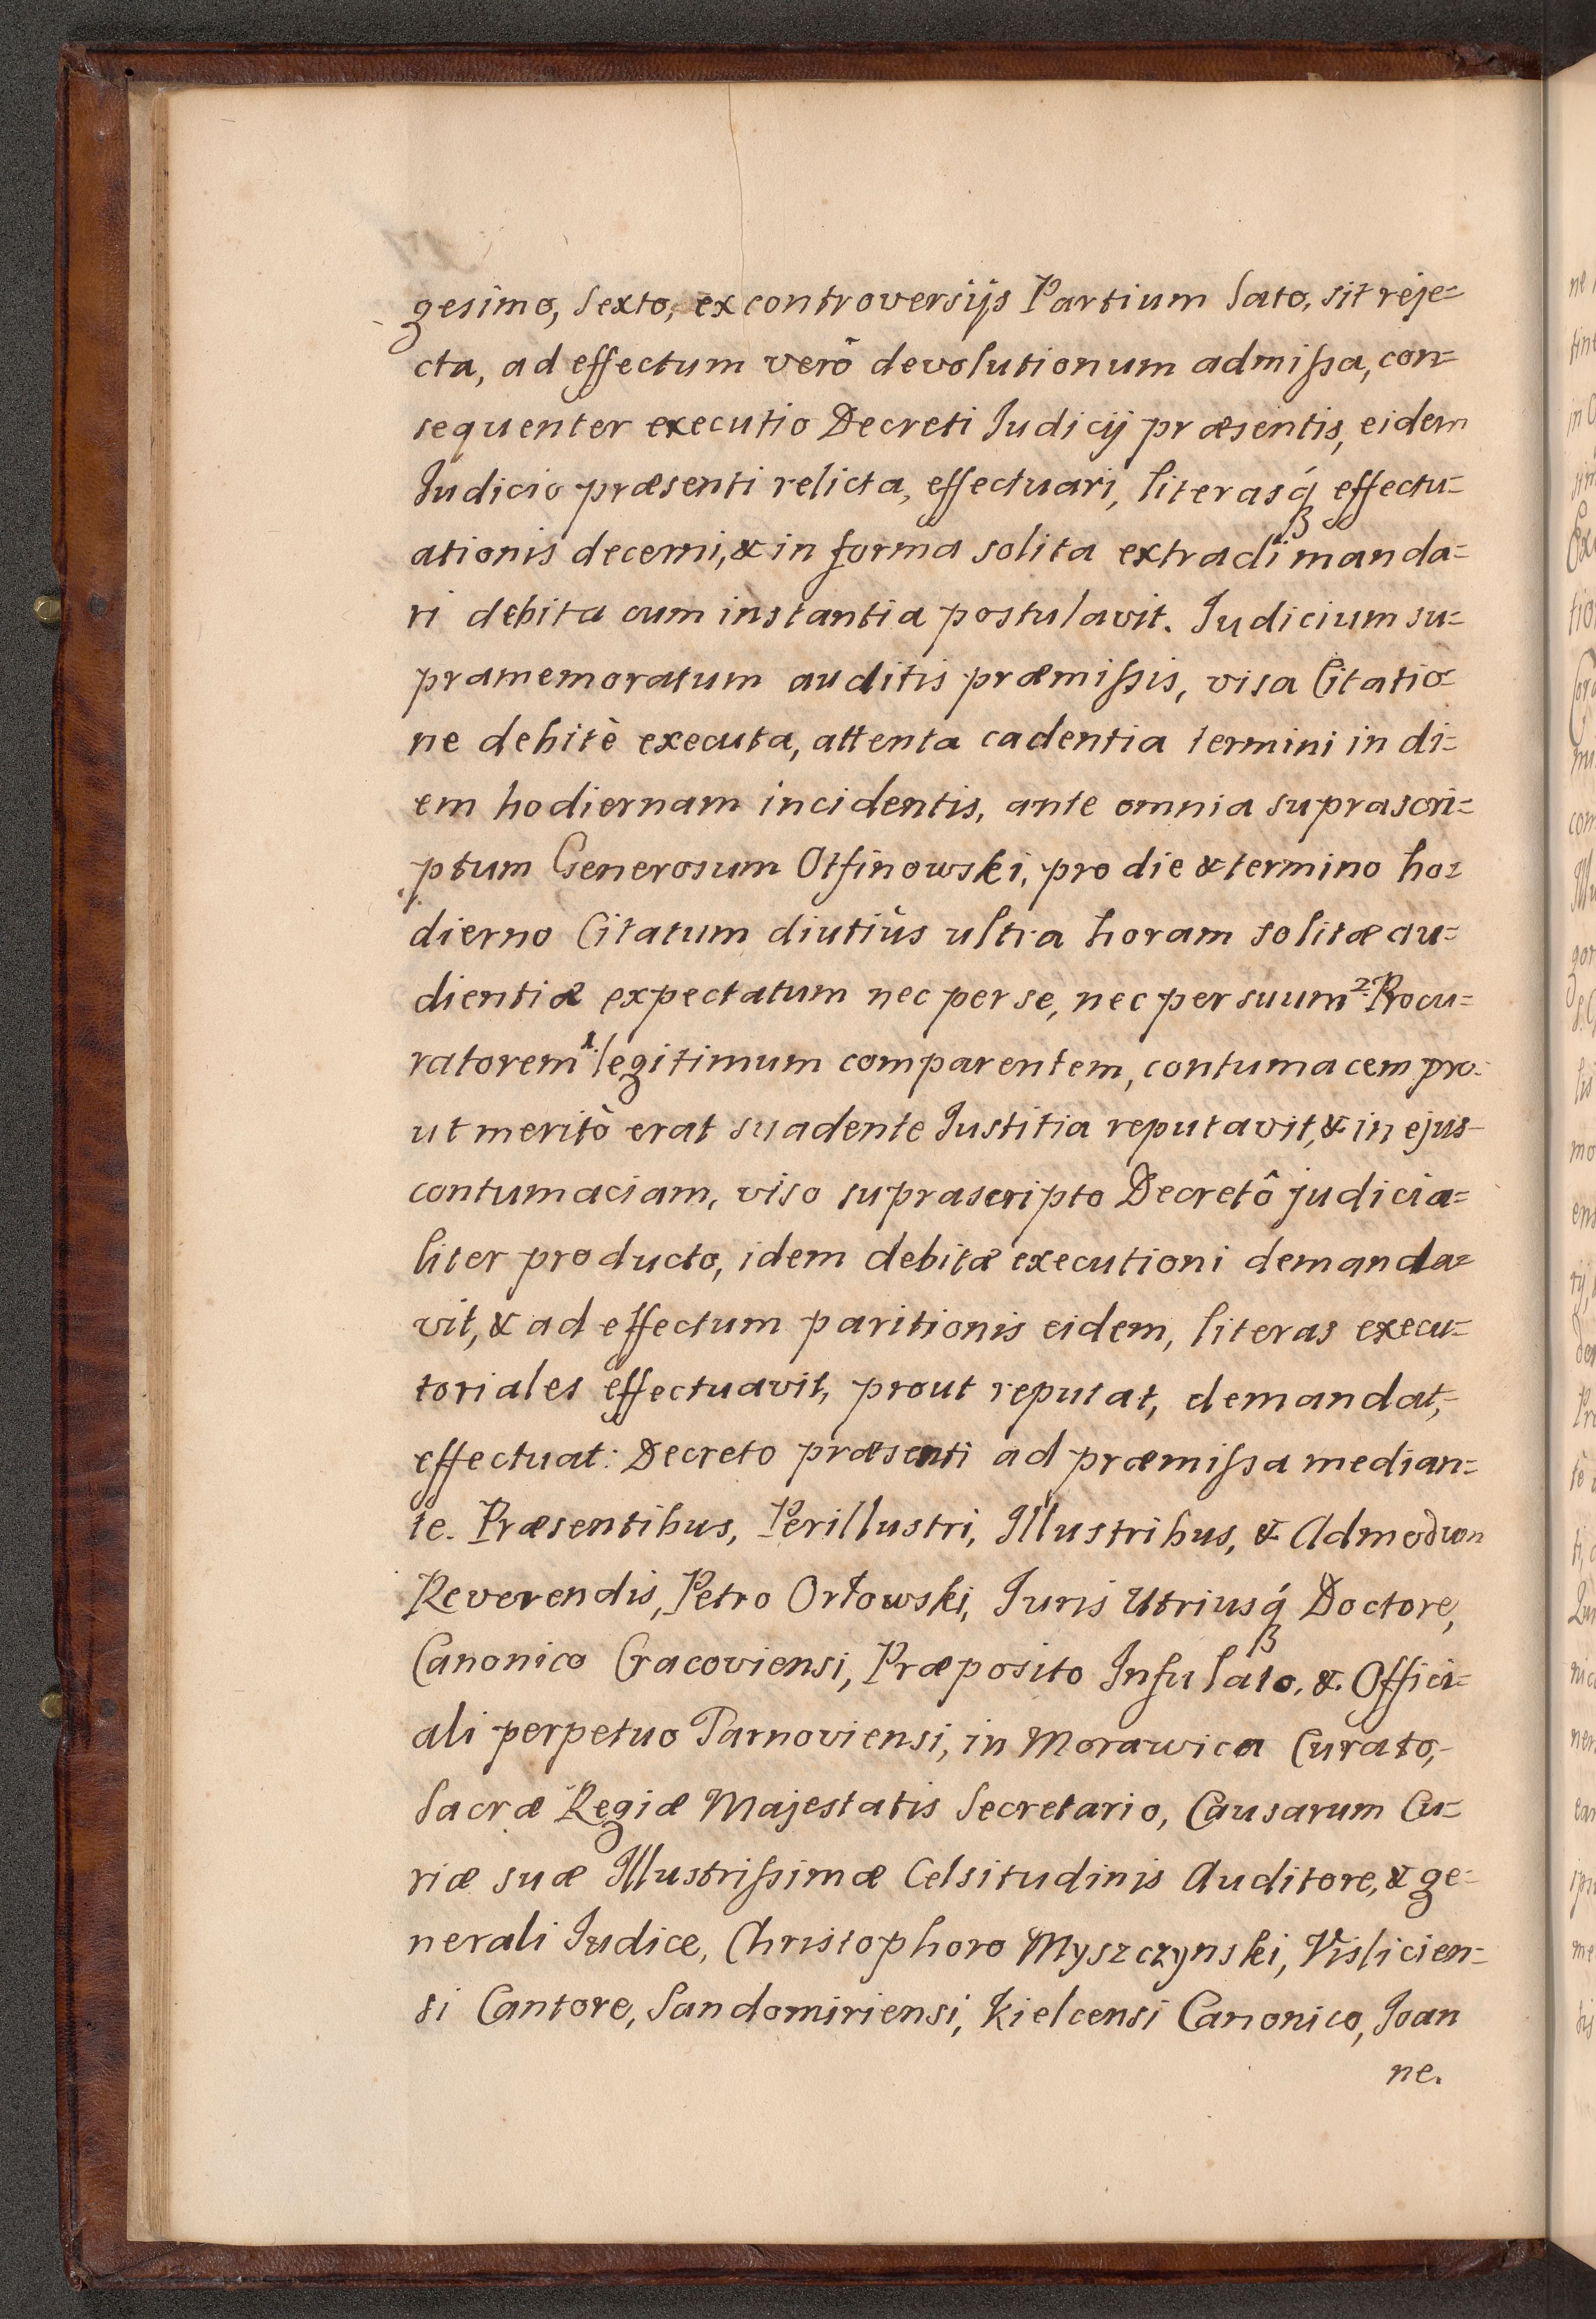 gesimo, Sexto, ex controversijs Partium Lato, sit reje=
cta, ad effectum verò devolutionum admissa, con=
sequenter executio Decreti Iudicij præsentis, eidem
Iudicio præsenti relicta, effectuari, literasq́ꝫ effectu=
ationis decerni, & in forma solita extradi manda=
ri debita cum instantia postulavit. Iudicium su=
pramemoratum auditis præmissis, visa Citatio=
ne debitè executa, attenta cadentia termini in di=
em hodiernam incidentis, ante omnia suprascri=
ptum Generosum Otfinowski, pro die & termino ho=
dierno Citatum diutiùs ultra horam solitæ au=
dientiæ expectatum nec per se, nec per suum 2. Procu=
ratorem 1. legitimum comparentem, contumacem pro=
ut meritò erat suadente Iustitia reputavit, & in ejus
contumaciam, viso suprascripto Decretô judicia=
liter producto, idem debitæ executioni demanda=
vit, & ad effectum paritionis eidem, literas execu=
toriales effectuavit, prout reputat, demandat,
effectuat: Decreto præsenti ad præmissa median=
te. Præsentibus, Perillustri, Illustribus, & Admodum
Reverendis, Petro Orłowski, Iuris Utriusq́ꝫ Doctore,
Canonico Cracoviensi, Præposito Infulato, & Offici=
ali perpetuo Tarnoviensi, in Morawica Curato,
Sacræ Regiæ Majestatis Secretario, Causarum Cu=
riæ suæ Illustrissimæ Celsitudinis Auditore, & ge=
nerali Iudice, Christophoro Myszczynski, Vislicien=
si Cantore, Sandomiriensi, Kielcensi Canonico, Joan
ne.